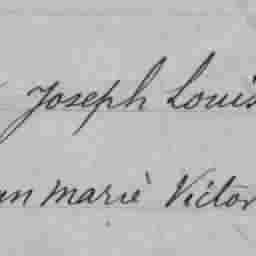 Joseph Louis
an mariè Victor